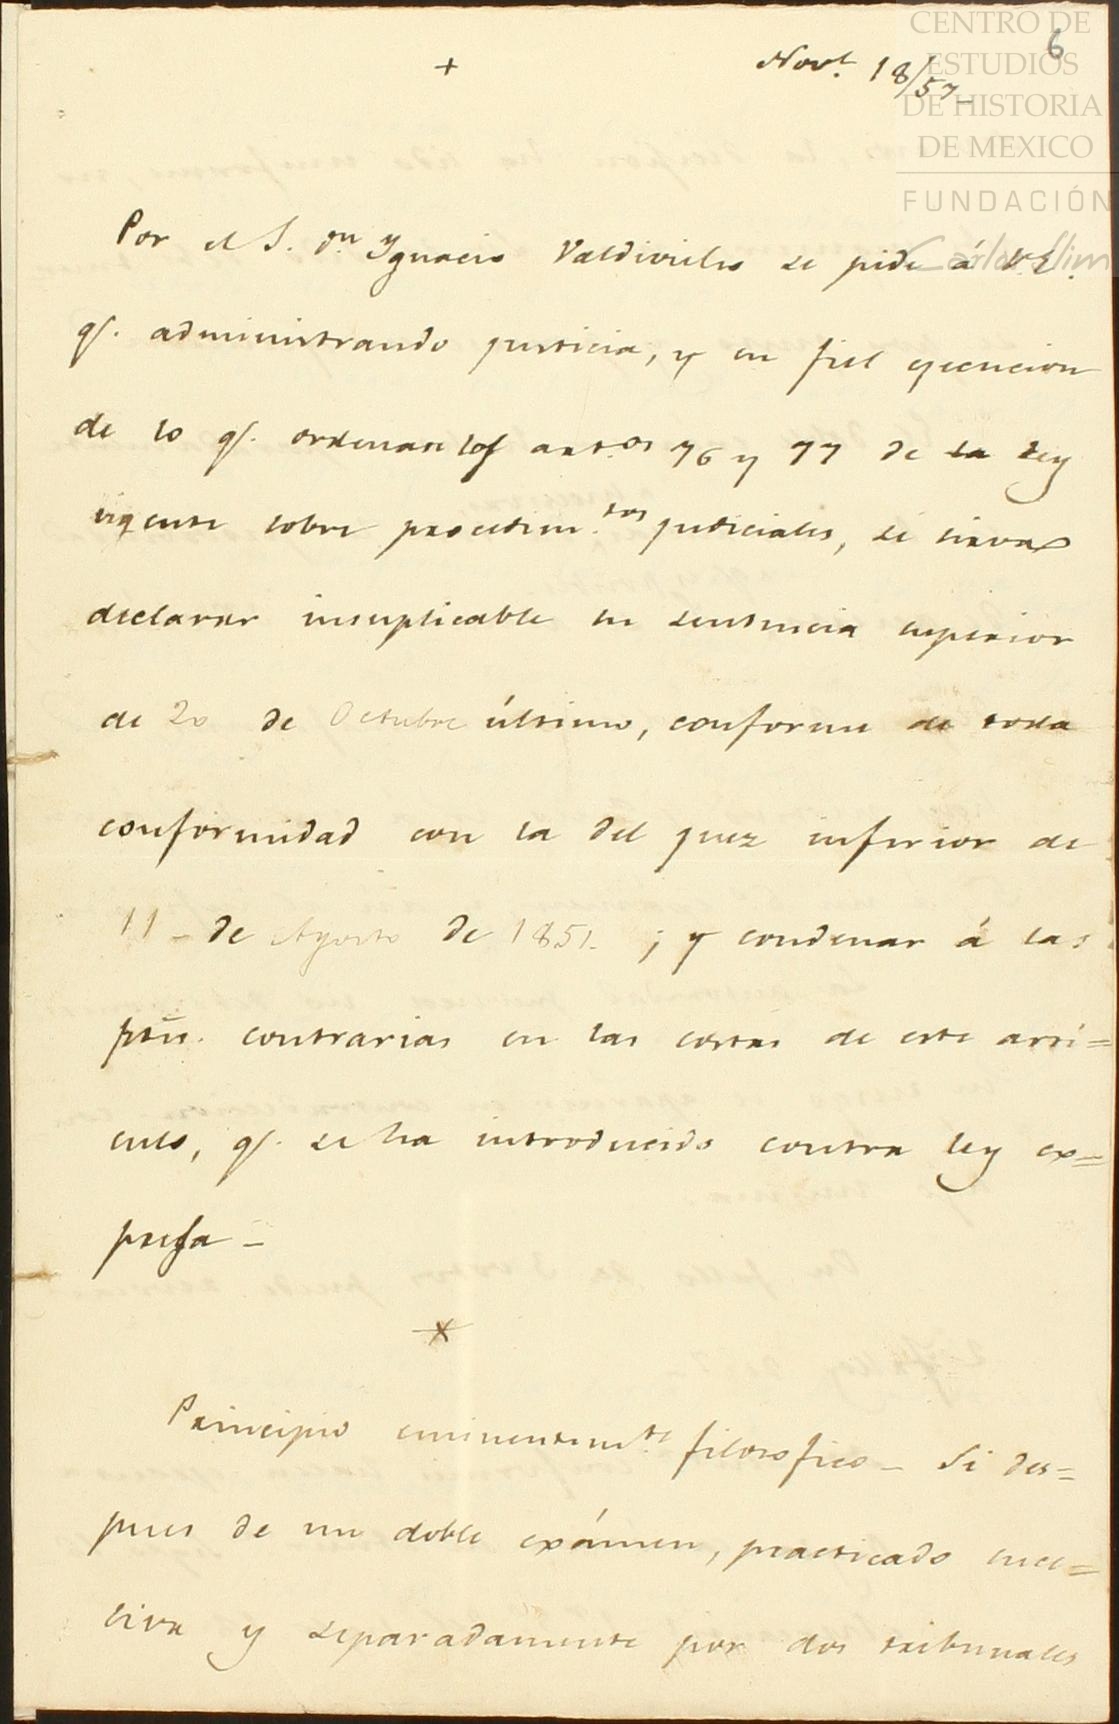 CENTRO DE
ESTUDIOS
DE HISTORIA
DE MEXICO
FUNDACIÓN
Carlos Slim
6
+
Nov.e 18/57_
Por el S. Dn. Ygnacio Valdivielso se pide á V.E.
q.e administrando justicia, y en fiel ejecucion
de lo q.e ordenan los art.os 76 y 77 de la ley
vigente sobre procedim.tos judiciales, se sirva
declarar insuplicable su sentencia superior
de 20 de Octubre último, conforme de toda
conformidad con la del juez inferior de
11_ de Agosto de 1851. ; y condenar á las
ptes. contrarias en las costas de este artí=
culo, q.e se ha introducido contra ley ex=
presa _
*
Principio eminentem.te filosofico _ Si des=
pues de un doble exámen, practicado suce=
siva y separadamente por dos tribunales